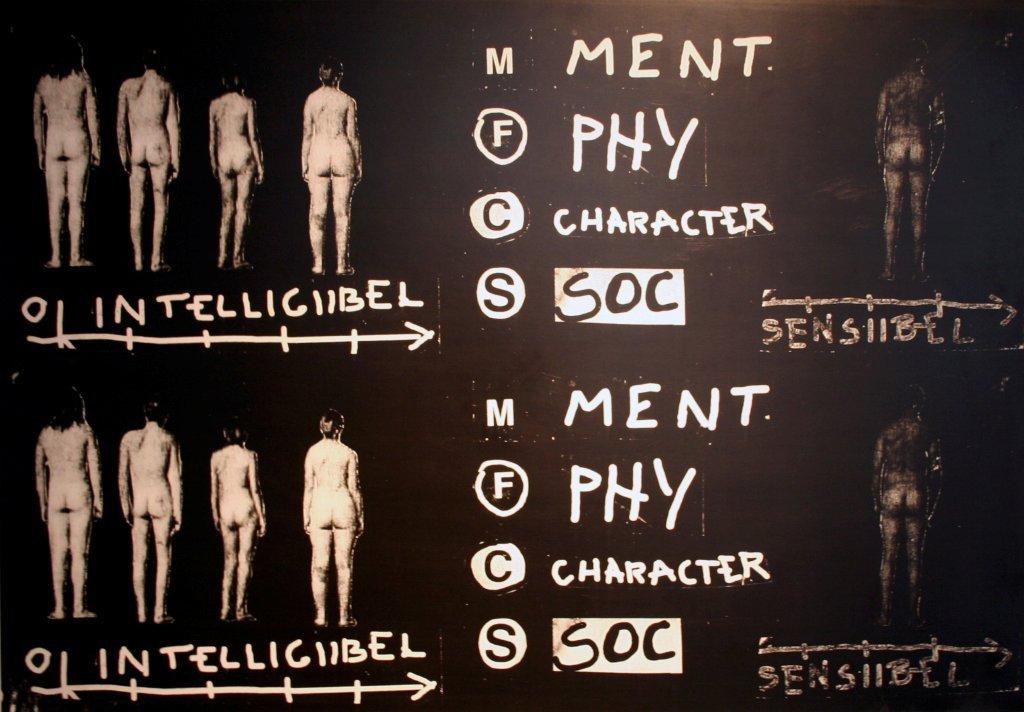 M MENT.
F PHY
C CHARACTER
S SOC
0 INTELLIGIIBEL
SENSIIBEL
M MENT.
F PHY
C CHARACTER
S SOC
0 INTELLIGIIBEL
SENSIIBEL